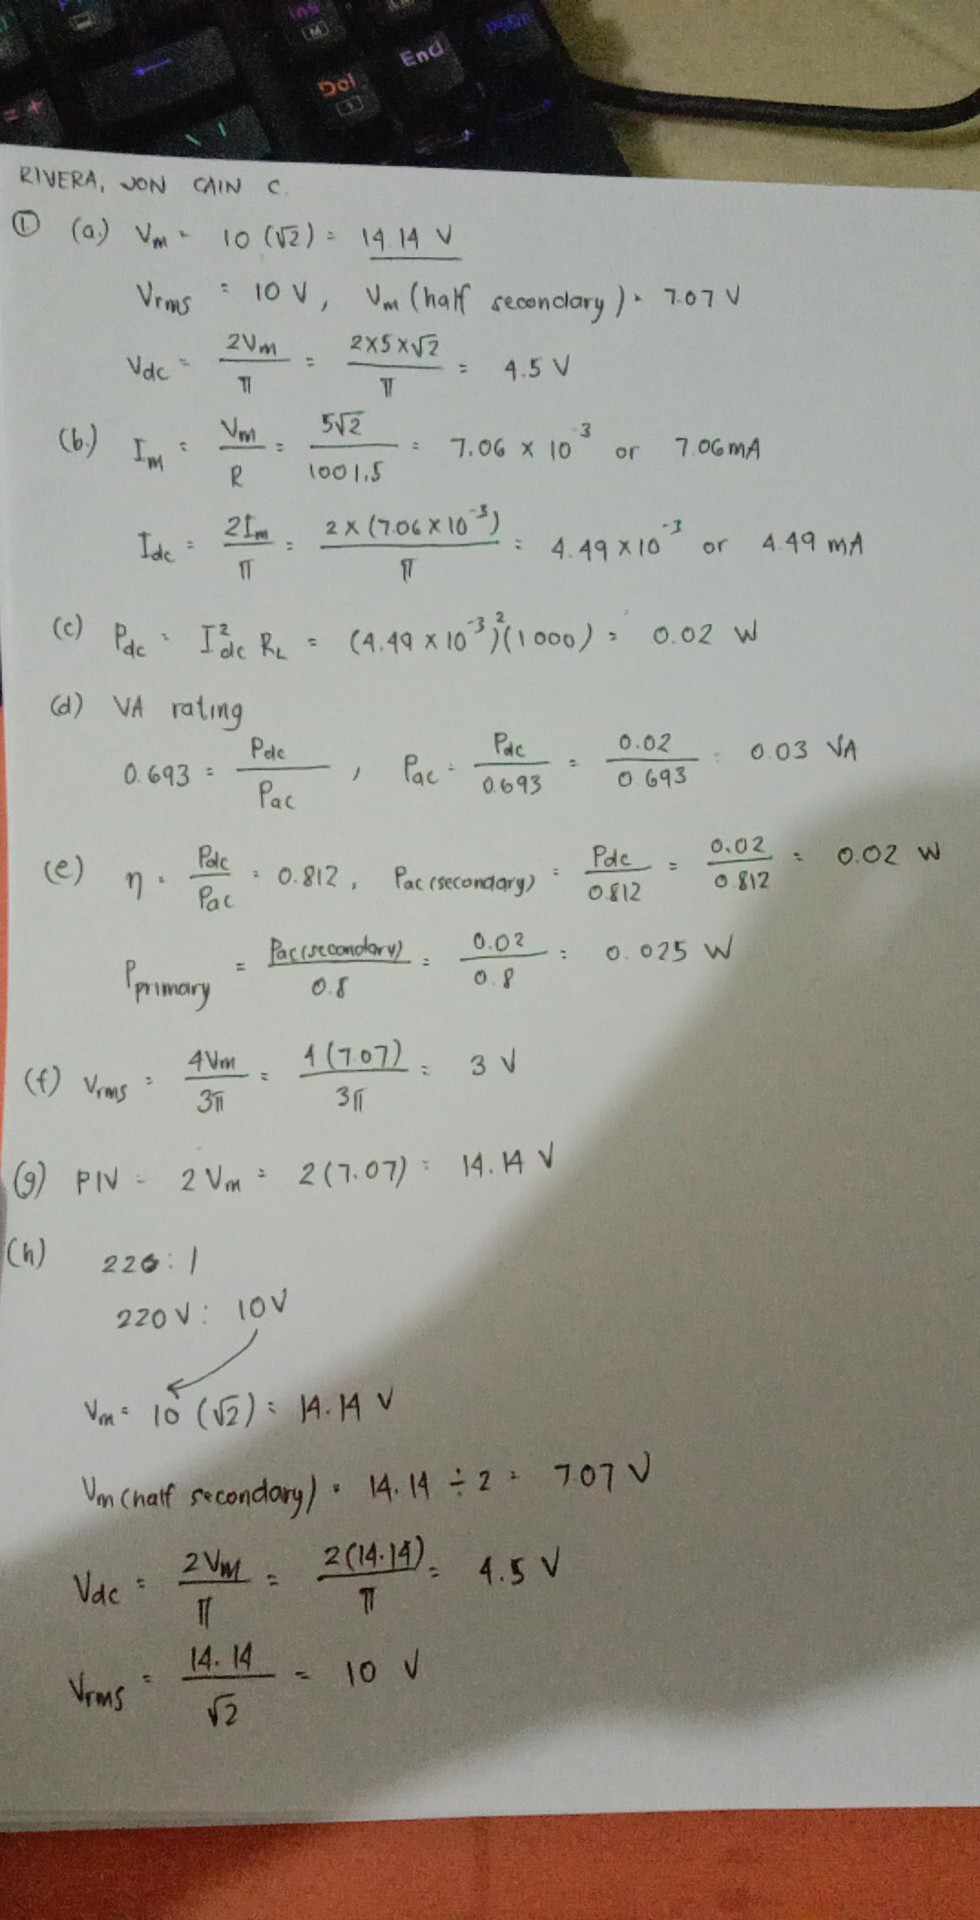 Ins
End
Del
RIVERA, JON CAIN C.
① (a.) Vm = 10 (√2) = 14.14 V
Vrms = 10 V, Vm (half secondary) = 7.07 V
Vdc = 2Vm/π = 2×5×√2/π = 4.5 V
(b.) Im = Vm/R = 5√2/1001.5 = 7.06 × 10^-3 or 7.06mA
Idc = 2Im/π = 2 × (7.06 × 10^-3)/π = 4.49 × 10^-3 or 4.49 mA
(c) Pdc = I²dc RL = (4.49 × 10^-3)²(1000) = 0.02 W
(d) VA rating
0.693 = Pdc/Pac , Pac = Pdc/0.693 = 0.02/0.693 = 0.03 VA
(e) η = Pdc/Pac = 0.812, Pac (secondary) = Pdc/0.812 = 0.02/0.812 = 0.02 W
Pprimary = Pac(secondary)/0.8 = 0.02/0.8 = 0.025 W
(f) Vrms = 4Vm/3π = 4(7.07)/3π = 3 V
(g) PIV = 2 Vm = 2(7.07) = 14.14 V
(h) 220:1
220 V: 10V
Vm = 10 (√2) = 14.14 V
Vm (half secondary) = 14.14 ÷ 2 = 7.07 V
Vdc = 2VM/π = 2(14.14)/π = 4.5 V
Vrms = 14.14/√2 = 10 V